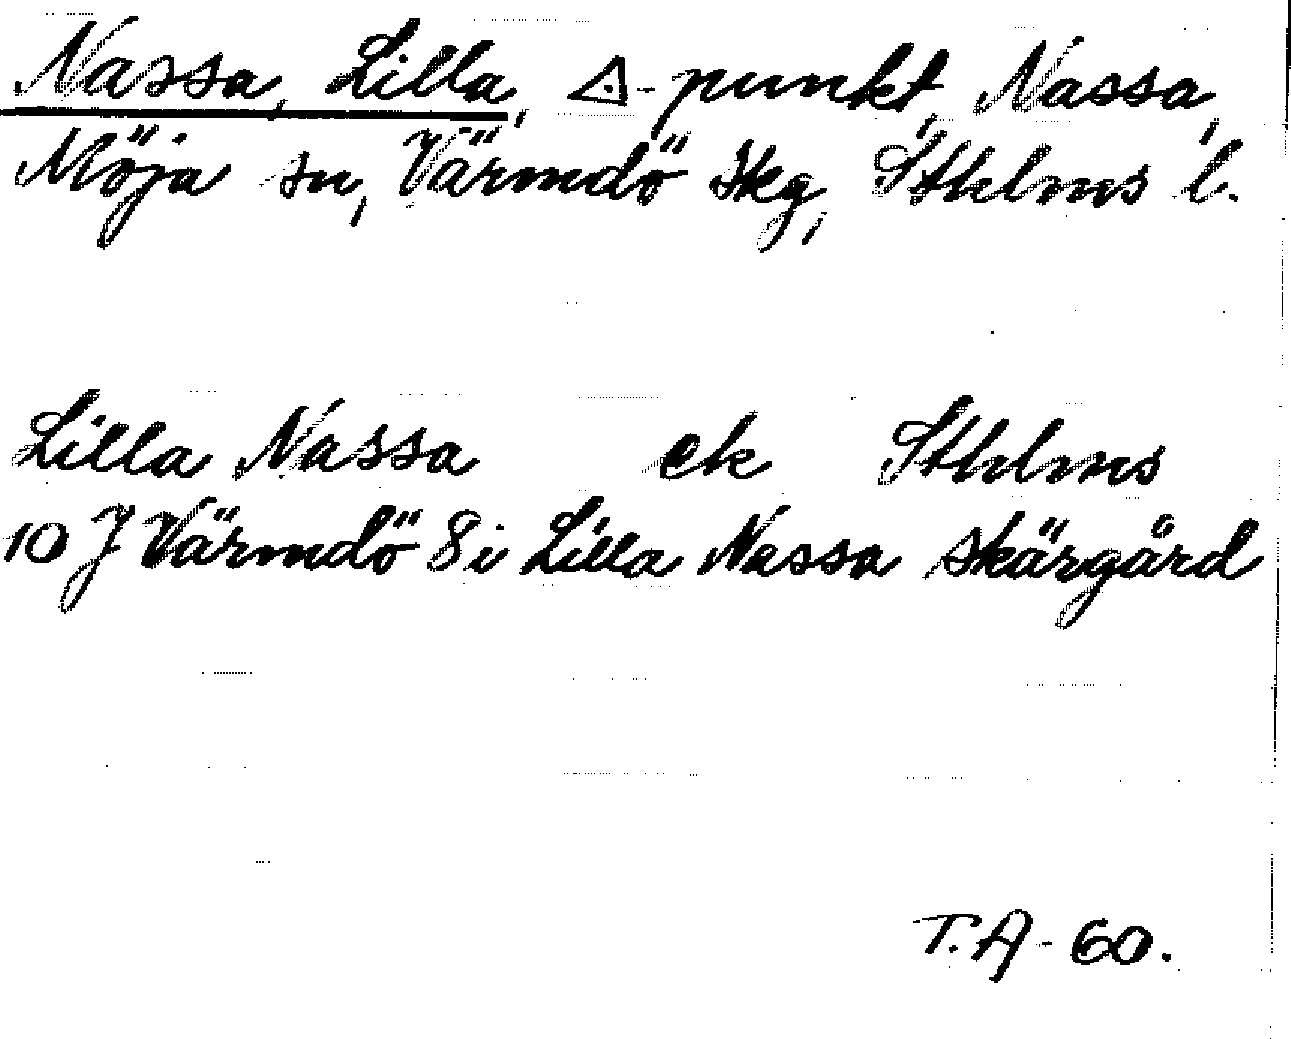 Nassa, Lilla, △-punkt, Nassa,
Möja sn, Värmdö skg, Sthlms l.
Lilla Nassa ek Sthlms
10 J Värmdö 8 i Lilla Nassa skärgård
T.A-60.